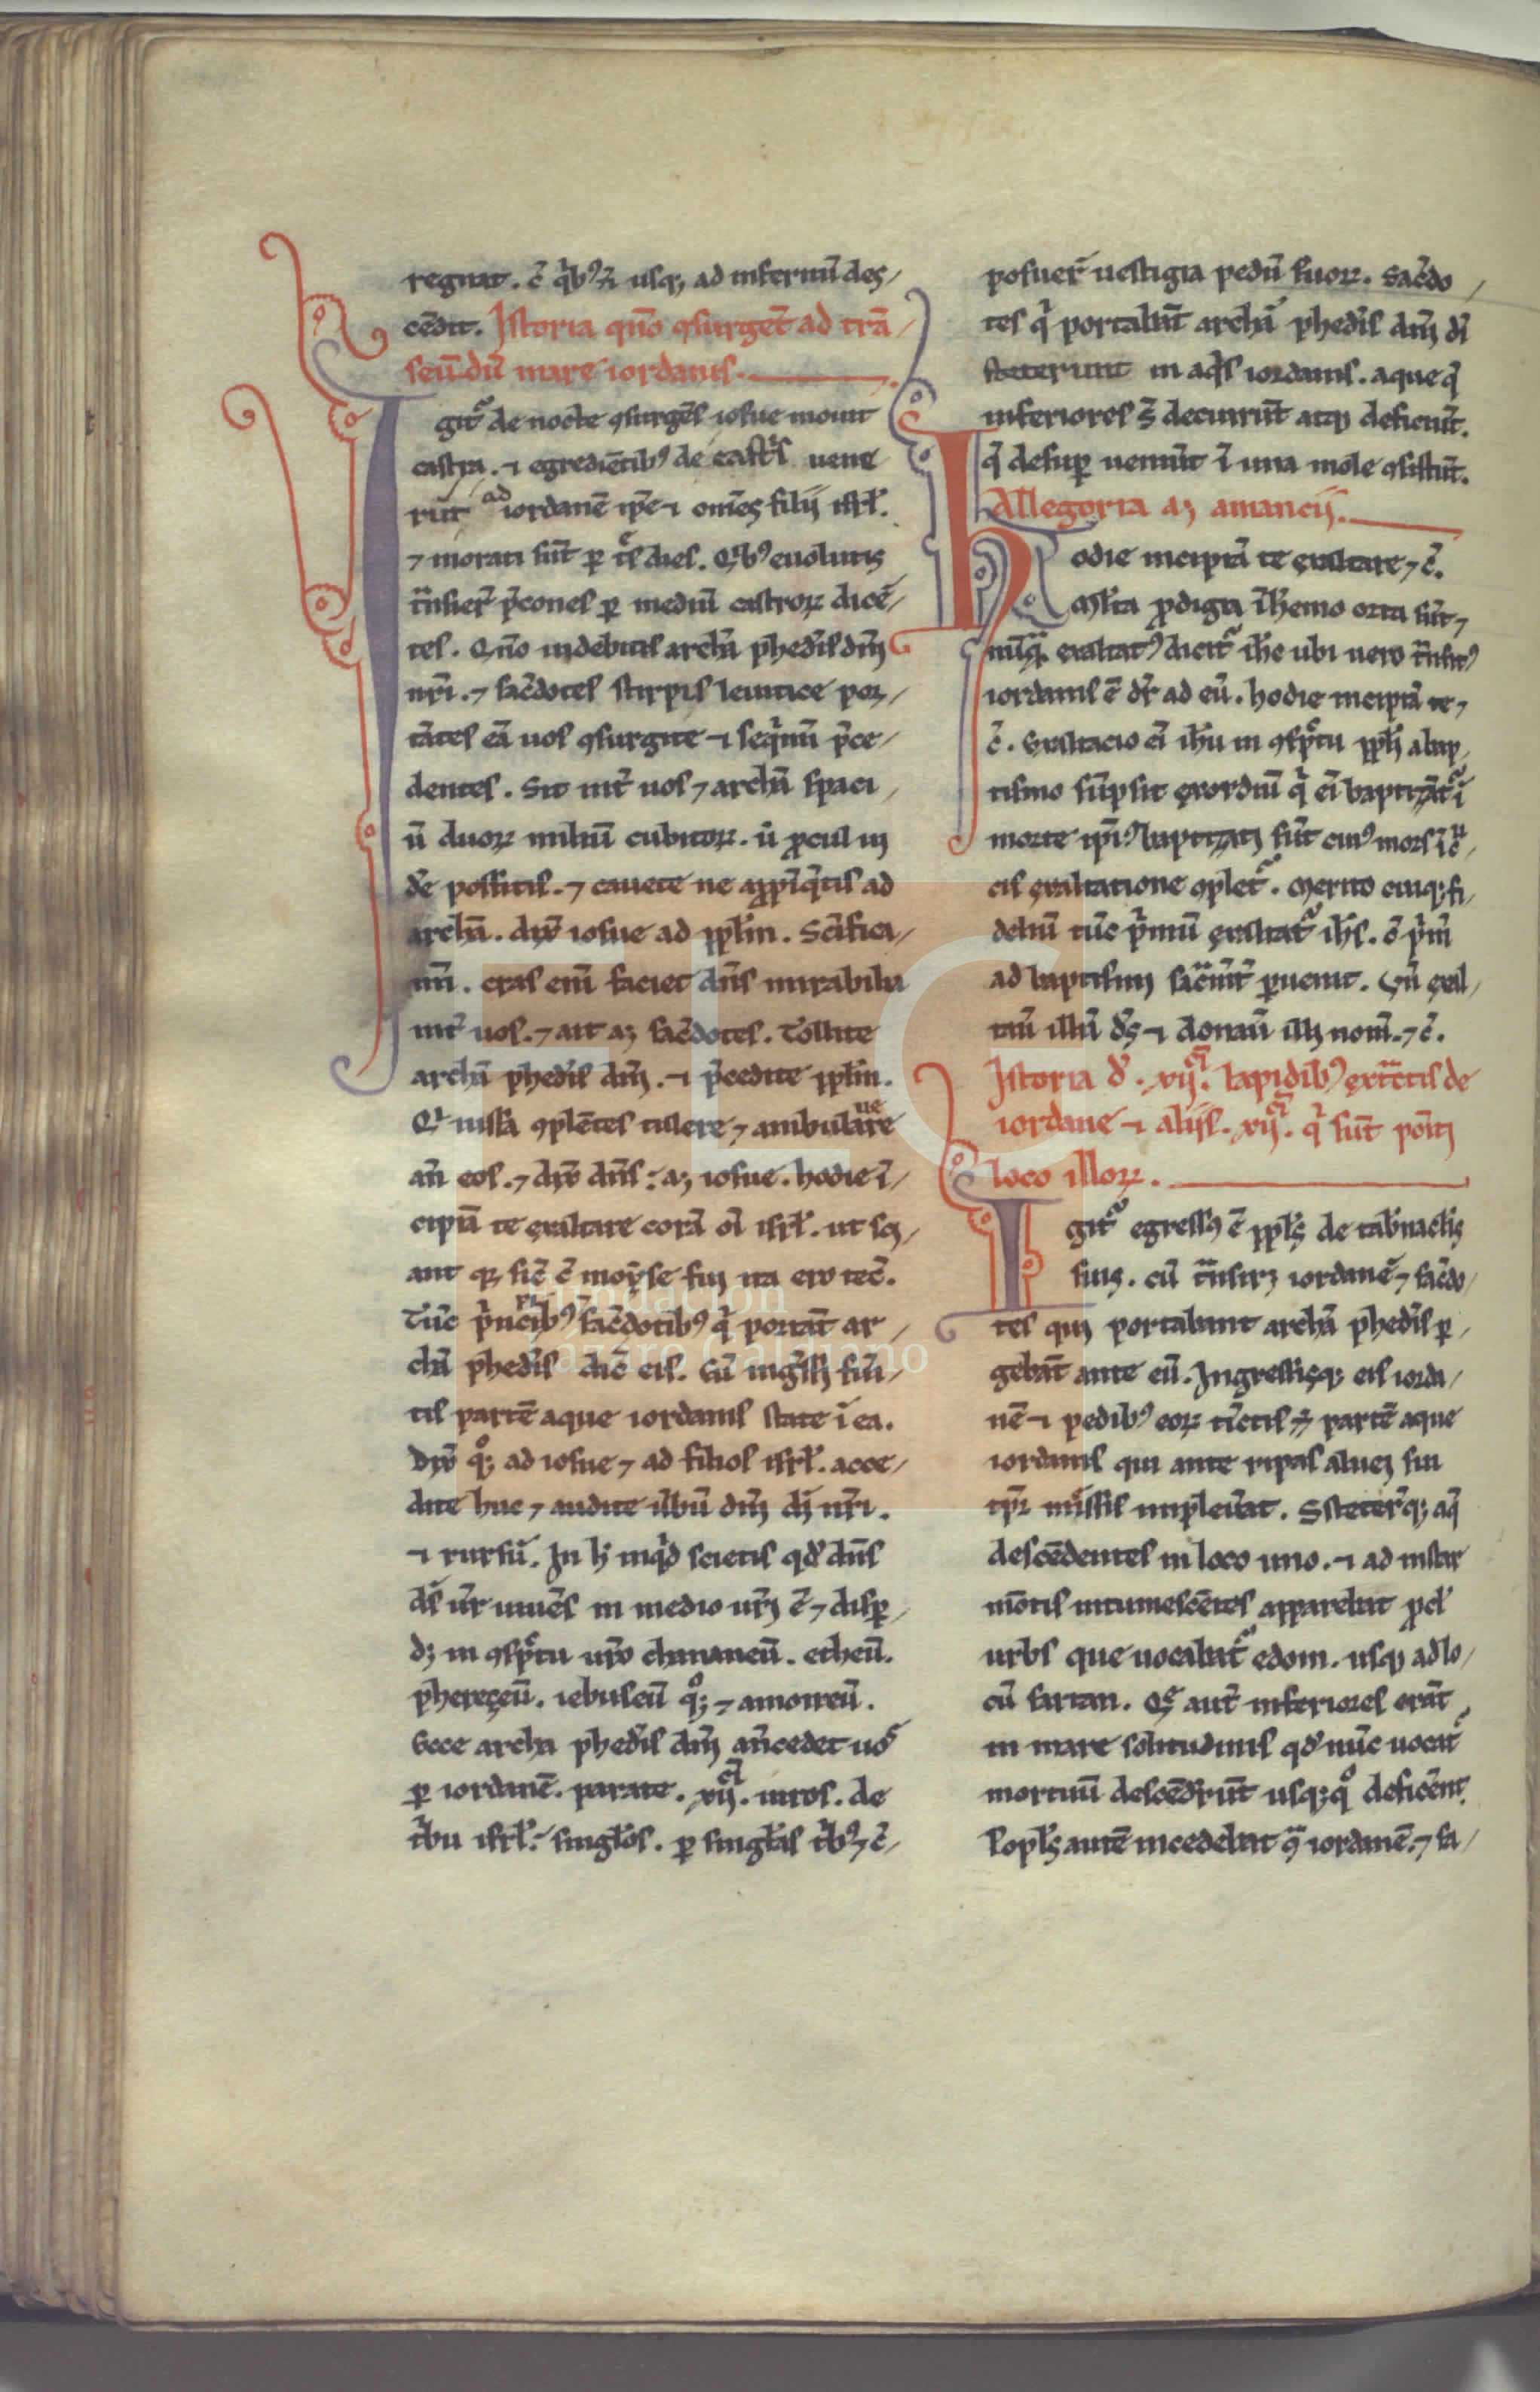 regnat. c̄ qͥbꝰ ⁊ usq; ad infernū des/
cēdit. Istoria qn̄o ꝯsurget̄ ad trā/
seūdū mare iordanis.
Igit᷑ de nocte ꝯsurgēs iosue mouit
castra. ⁊ egrediētibꝰ de castͥs uene
rūt ad iordanē ip̄e ⁊ om̄es filij isrl̄.
⁊ morati sūt ꝑ tͤs dies. Qͥbꝰ euolutis
tͣnsier̄ p̄cones ꝑ mediū castroꝝ dicē/
tes. Qn̄o uidebitis archā phed̄is dn̄i
nr̄i. ⁊ sac̄dotes stirpis leuitice por/
tātes eā uos ꝯsurgite ⁊ seqͥmī p̄ce/
dentes. Sit int̄ uos ⁊ archā spaci/
ū duoꝝ miliū cubitoꝝ. ut̄ ꝓcul ui
de possitis. ⁊ cauete ne aꝓpīqͥtis ad
archā. dix̄ iosue ad ppl̄m. Scīfica/
mī. cras enī faciet dn̄s mirabilia
int̄ uos. ⁊ ait aꝫ sac̄dotes. Tollite
archā phed̄is dn̄i. ⁊ p̄cedite ppl̄m.
Qͥ iussa ꝯplētes tulere ⁊ ambulauere
an̄ eos. ⁊ dix̄ dn̄s: aꝫ iosue. hodie ī/
cipiā te exaltare corā oī isrl̄. ut sci/
ant qꝫ sic̄ c̄ moyse fui ita ero tec̄.
Tūc p̄ncīpibꝰ sac̄dotibꝰ qͥ portāt ar/
chā phed̄is dic̄ eis. Cū ingͤssi fūi/
tis partē aque iordanis state ī ea.
Dix̄ qͦ; ad iosue ⁊ ad filios isrl̄. acce/
dite huc ⁊ audite ūbū dn̄i dī nr̄i.
⁊ rursū. In h̄ inqͥd scietis qd̄ dn̄s
ds̄ ur̄ uiuēs in medio ur̄i ē ⁊ disꝑ/
dꝫ in ꝯspc̄tu ur̄o chananeū. etheū.
pherezeū. iebuseū qͦ; ⁊ amorreū.
Ecce archa phed̄is dn̄i an̄cedet uos
ꝑ iordanē. parate. xijͨⁱ. uiros. de
tͥbu isrl̄: singl̄os. ꝑ singl̄as tͥbꝰ ⁊ c̄/
posuer̄ uestigia pedū suoꝝ. sac̄do/
tes qͥ portabāt archā phed̄is dn̄i dī
steterunt in aqͥs iordanis. aque qͤ
inferiores s̄t decurrūt atqꝫ deficiūt.
qͤ desuꝑ ueniūt ī una mole ꝯsistūt.
Allegoria aꝫ amancij.
Hodie incipiā te exaltare ⁊ c̄.
Ml̄ta ꝓdigia ih̄emo orta sūt ⁊
nūqͣ exaltatꝰ dicit᷑ ih̄c ubi uero tͣnsitꝰ
iordanis ē dr̄ ad eū. hodie incipiā te ⁊
c̄. Exaltacio eī ih̄u in ꝯspc̄tu ppl̄i a bap/
tismo sūpsit exordiū qͥ eī baptizāt᷑ ī
morte ip̄iꝰ baptizati sūt cuiꝰ mors ī cͧ/
cis exaltatione ꝯplet᷑. Merito cuiq; fi/
deliū tūc pͥmū exaltat᷑ ih̄s. c̄ pͥm̄
ad baptismi sacͣmt̄ ꝑuenit. Un̄ exal/
tauī illū ds̄ ⁊ donauī illi nom̄. ⁊ c̄.
Istoria d̄. xijͨⁱ. lapidibꝰ extͣctis de
iordane ⁊ alijs. xijͨⁱ. qͥ sūt poīti
loco illoꝝ.
Igit᷑ egressꝰ ē ppl̄s de tab̄nacl̄is
suis. cū tͣnsirꝫ iordanē ⁊ sac̄do/
tes qui portabant archā phed̄is ꝑ/
gebāt ante eū. Ingressisq; eis iorda/
nē ⁊ pedibꝰ eoꝝ tīctis ī partē aque
iordanis qui ante ripas aluei sui
tp̄r missis impleūat. Steter̄q; aqͤ
descēdentes in loco uno. ⁊ ad instar
mōtis intumescētes apparebat ꝓcl̄
urbs que uocabat᷑ edom. usqꝫ ad lo/
cū sartan. Qͤ aut̄ inferiores erāt
in mare solitudinis qd̄ nūc uocat᷑
mortuū descēdr̄ūt usq;qͦ deficēnt.
Popl̄s autē incedebat ꝯtͣ iordanē. ⁊ sa/
Fundación
Lázaro Galdiano